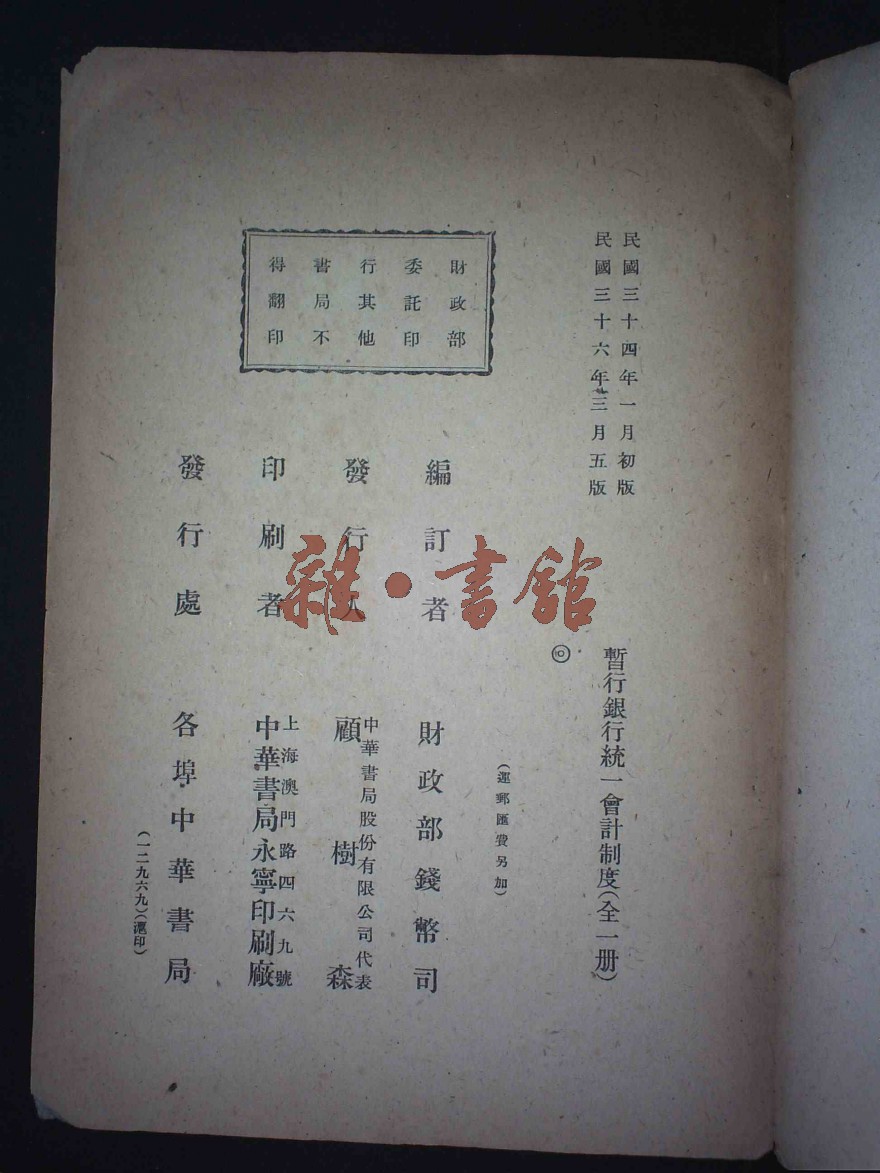 民國三十四年一月初版
民國三十六年三月五版
暫行銀行統一會計制度(全一册)
(運郵匯費另加)
財政部
委託印
行其他
書局不
得翻印
編訂者 財政部錢幣司
發行人 中華書局股份有限公司代表
顧樹森
印刷者 上海澳門路四六九號
中華書局永寧印刷廠
發行處 各埠中華書局
(一二九六九)(滬印)
雜·書館